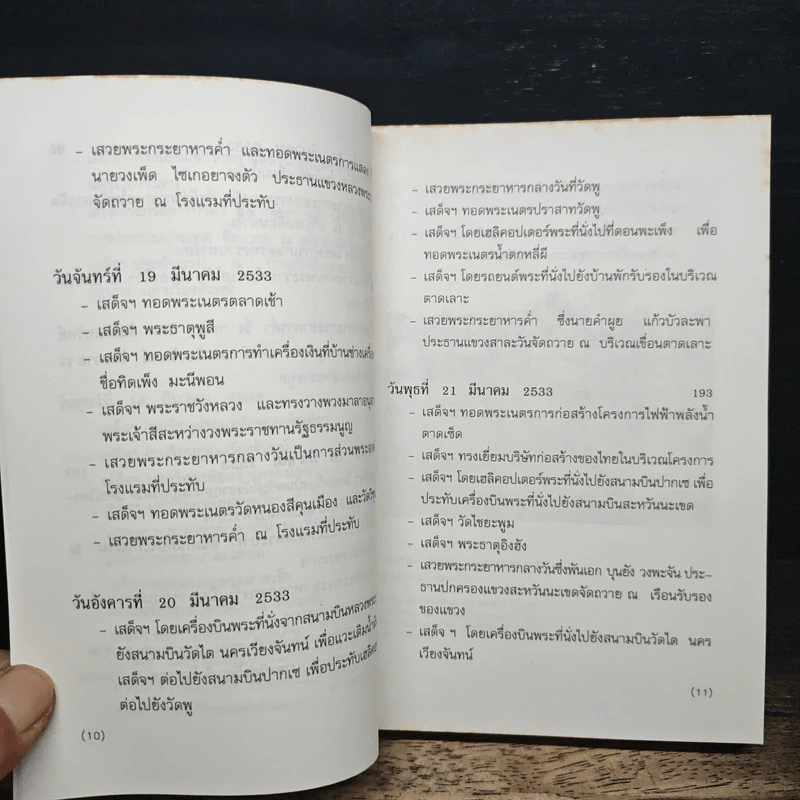 - เสวยพระกระยาหารค่ำ และทอดพระเนตรการแสดง
นายวงเพ็ด ไซเกอยาจงตัว ประธานแขวงหลวงพระ
จัดถวาย ณ โรงแรมที่ประทับ
วันจันทร์ที่ 19 มีนาคม 2533
- เสด็จฯ ทอดพระเนตรตลาดเช้า
- เสด็จฯ พระธาตุพูสี
- เสด็จฯ ทอดพระเนตรการทำเครื่องเงินที่บ้านช่างเครื่อง
ชื่อทิดเพ็ง มะนีพอน
- เสด็จฯ พระราชวังหลวง และทรงวางพวงมาลาอนุสา
พระเจ้าสีสะหว่างวงพระราชทานรัฐธรรมนูญ
- เสวยพระกระยาหารกลางวันเป็นการส่วนพระองค์
โรงแรมที่ประทับ
- เสด็จฯ ทอดพระเนตรวัดหนองสีคุนเมือง และวัด
- เสวยพระกระยาหารค่ำ ณ โรงแรมที่ประทับ
วันอังคารที่ 20 มีนาคม 2533
- เสด็จฯ โดยเครื่องบินพระที่นั่งจากสนามบินหลวงพระ
ยังสนามบินวัดไต นครเวียงจันทน์ เพื่อแวะเติมน้ำมัน
เสด็จฯ ต่อไปยังสนามบินปากเซ เพื่อประทับเฮลิคอ
ต่อไปยังวัดพู
(10)
- เสวยพระกระยาหารกลางวันที่วัดพู
- เสด็จฯ ทอดพระเนตรปราสาทวัดพู
- เสด็จฯ โดยเฮลิคอปเตอร์พระที่นั่งไปที่ดอนพะเพ็ง เพื่อ
ทอดพระเนตรน้ำตกหลี่ผี
- เสด็จฯ โดยรถยนต์พระที่นั่งไปยังบ้านพักรับรองในบริเวณ
ตาดเลาะ
- เสวยพระกระยาหารค่ำ ซึ่งนายคำผูย แก้วบัวละพา
ประธานแขวงสาละวันจัดถวาย ณ บริเวณเขื่อนตาดเลาะ
วันพุธที่ 21 มีนาคม 2533 193
- เสด็จฯ ทอดพระเนตรการก่อสร้างโครงการไฟฟ้าพลังน้ำ
ตาดเซ็ด
- เสด็จฯ ทรงเยี่ยมบริษัทก่อสร้างของไทยในบริเวณโครงการ
- เสด็จฯ โดยเฮลิคอปเตอร์พระที่นั่งไปยังสนามบินปากเซ เพื่อ
ประทับเครื่องบินพระที่นั่งไปยังสนามบินสะหวันนะเขด
- เสด็จฯ วัดไชยะพูม
- เสด็จฯ พระธาตุอิงฮัง
- เสวยพระกระยาหารกลางวันซึ่งพันเอก บุนยัง วงพะจัน ประ-
ธานปกครองแขวงสะหวันนะเขดจัดถวาย ณ เรือนรับรอง
ของแขวง
- เสด็จ ฯ โดยเครื่องบินพระที่นั่งไปยังสนามบินวัดไต นคร
เวียงจันทน์
(11)